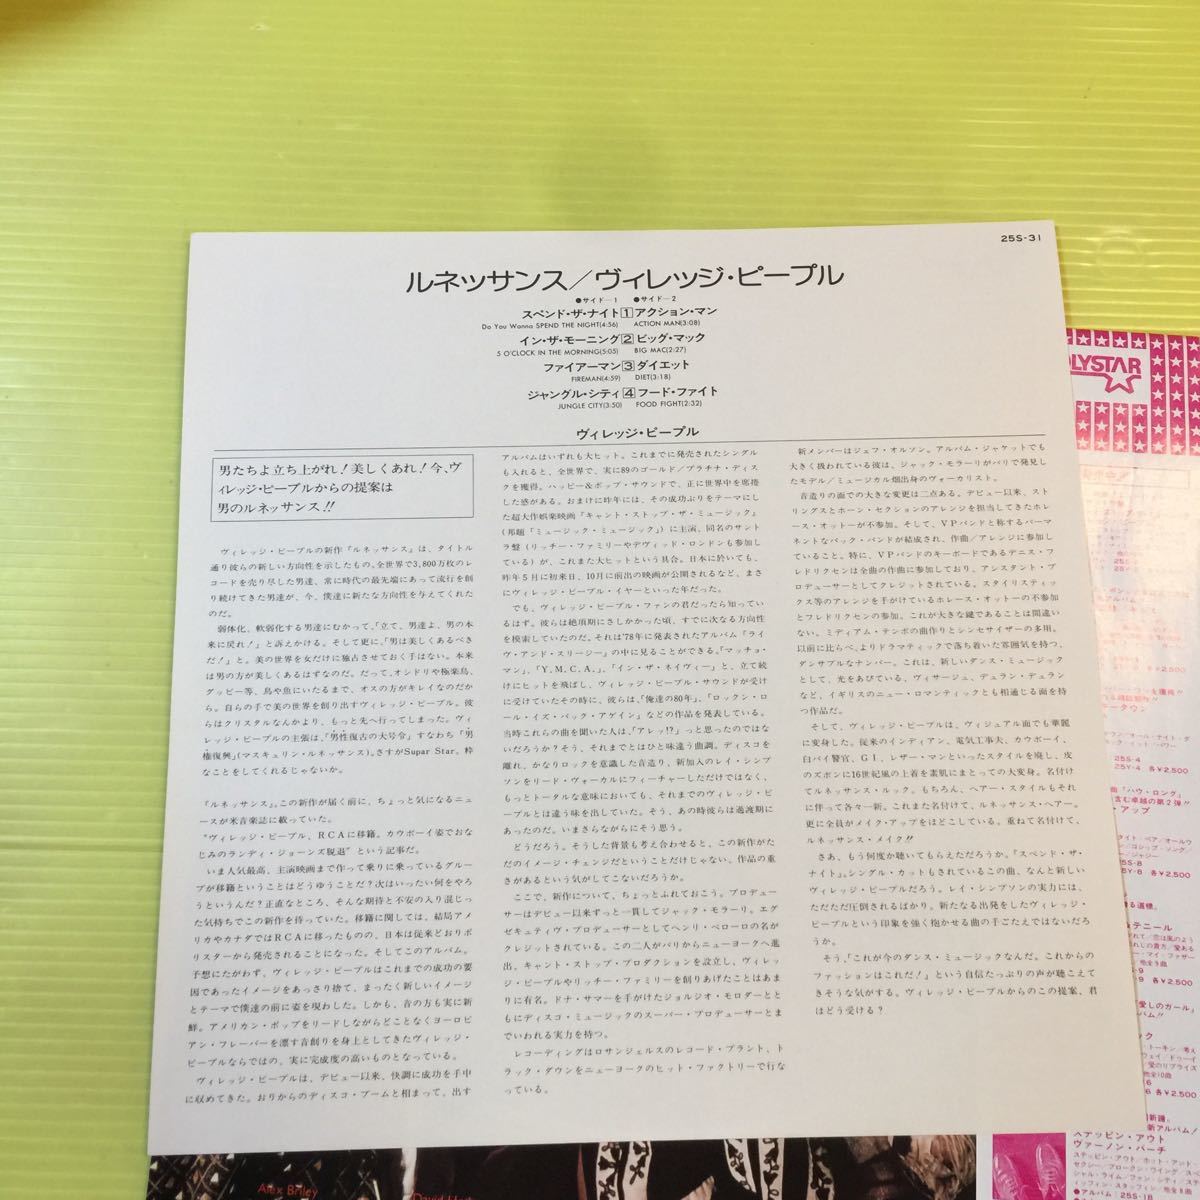 25S-31
ルネッサンス／ヴィレッジ・ピープル
●サイド－1 ●サイド－2
スペンド・ザ・ナイト 1 アクション・マン
Do You Wanna SPEND THE NIGHT(4:56) ACTION MAN(3:08)
イン・ザ・モーニング 2 ビッグ・マック
5 O'CLOCK IN THE MORNING(5:05) BIG MAC(2:27)
ファイアーマン 3 ダイエット
FIREMAN(4:59) DIET(3:18)
ジャングル・シティ 4 フード・ファイト
JUNGLE CITY(3:50) FOOD FIGHT(2:32)
ヴィレッジ・ピープル
男たちよ立ち上がれ！美しくあれ！今、ヴ
ィレッジ・ピープルからの提案は
男のルネッサンス!!
ヴィレッジ・ピープルの新作『ルネッサンス』は、タイトル
通り彼らの新しい方向性を示したもの。全世界で3,800万枚のレ
コードを売り尽した男達、常に時代の最先端にあって流行を創
り続けてきた男達が、今、僕達に新たな方向性を与えてくれた
のだ。
弱体化、軟弱化する男達にむかって、「立て、男達よ、男の本
来に戻れ！」と訴えかける。そして更に、「男は美しくあるべき
だ！」と。美の世界を女だけに独占させておく手はない。本来
は男の方が美しくあるはずなのだ。だって、オシドリや極楽鳥、
グッピー等、鳥や魚にいたるまで、オスの方がキレイなのだか
ら。自らの手で美の世界を創り出すヴィレッジ・ピープル。彼
らはクリスタルなんかより、もっと先へ行ってしまった。ヴィ
レッジ・ピープルの主張は、「男性復古の大号令」すなわち「男
権復興」(マスキュリン・ルネッサンス)。さすがSupar Star。粋
なことをしてくれるじゃないか。
『ルネッサンス』。この新作が届く前に、ちょっと気になるニュ
ースが米音楽誌に載っていた。
“ヴィレッジ・ピープル、RCAに移籍。カウボーイ姿でおな
じみのランディ・ジョーンズ脱退”という記事だ。
いま人気最高、主演映画まで作って乗りに乗っているグルー
プが移籍ということはどうゆうことだ？次はいったい何をやろ
うというんだ？正直なところ、そんな期待と不安の入り混じっ
た気持ちでこの新作を待っていた。移籍に関しては、結局アメ
リカやカナダではRCAに移ったものの、日本は従来どおりポ
リスターから発売されることになった。そしてこのアルバム。
予想にたがわず、ヴィレッジ・ピープルはこれまでの成功の要
因であったイメージをあっさり捨て、まったく新しいイメージ
とテーマで僕達の前に姿を現わした。しかも、音の方も実に新
鮮。アメリカン・ポップをリードしながらどことなくヨーロピ
アン・フレーバーを漂す音創りを身上としてきたヴィレッジ・
ピープルならではの、実に完成度の高いものとなっている。
ヴィレッジ・ピープルは、デビュー以来、快調に成功を手中
に収めてきた。おりからのディスコ・ブームと相まって、出す
アルバムはいずれも大ヒット。これまでに発売されたシングル
も入れると、全世界で、実に89のゴールド／プラチナ・ディス
クを獲得。ハッピー＆ポップ・サウンドで、正に世界中を席捲
した感がある。おまけに昨年には、その成功ぶりをテーマにし
た超大作娯楽映画『キャント・ストップ・ザ・ミュージック』
(邦題『ミュージック・ミュージック』)に主演、同名のサント
ラ盤(リッチー・ファミリーやデヴィッド・ロンドンも参加し
ている)が、これまた大ヒットという具合。日本に於いても、
昨年5月に初来日、10月に前出の映画が公開されるなど、まさ
にヴィレッジ・ピープル・イヤーといった年だった。
でも、ヴィレッジ・ピープル・ファンの君だったら知ってい
るはず。彼らは絶頂期にさしかかった頃、すでに次なる方向性
を模索していたのだ。それは'78年に発表されたアルバム『ライ
ヴ・アンド・スリージー』の中に見ることができる。「マッチョ・
マン」、「Y.M.C.A.」、「イン・ザ・ネイヴィー」と、立て続
けにヒットを飛ばし、ヴィレッジ・ピープル・サウンドが受け
に受けていたその時に、彼らは「俺達の80年」、「ロックン・ロ
ール・イズ・バック・アゲイン」などの作品を発表している。
当時これらの曲を聞いた人は、「アレッ!?」っと思ったのではな
いだろうか？そう、それまでとはひと味違う曲調。ディスコを
離れ、かなりロックを意識した音造り、新加入のレイ・シンプ
ソンをリード・ヴォーカルにフィーチャーしただけではなく、
もっとトータルな意味においても、それまでのヴィレッジ・ピ
ープルとは違う味を出していた。そう、あの時彼らは過渡期に
あったのだ。いまさらながらにそう思う。
どうだろう。そうした背景も考え合わせると、この新作がた
だのイメージ・チェンジだということだけじゃない、作品の重
さがあるという気がしてこないだろうか？
ここで、新作について、ちょっとふれておこう。プロデュー
サーはデビュー以来ずっと一貫してジャック・モラーリ。エグ
ゼキュティヴ・プロデューサーとしてヘンリ・ベローロの名が
クレジットされている。この二人がパリからニューヨークへ進
出、キャント・ストップ・プロダクションを設立し、ヴィレッ
ジ・ピープルやリッチー・ファミリーを創りあげたことはあま
りに有名。ドナ・サマーを手がけたジョルジオ・モロダーとと
もにディスコ・ミュージックのスーパー・プロデューサーとま
でいわれる実力を持つ。
レコーディングはロサンジェルスのレコード・プラント、ト
ラック・ダウンをニューヨークのヒット・ファクトリーで行な
っている。
新メンバーはジェフ・オルソン。アルバム・ジャケットでも
大きく扱われている彼は、ジャック・モラーリがパリで発見し
たモデル／ミュージカル畑出身のヴォーカリスト。
音造りの面での大きな変更は二点ある。デビュー以来、スト
リングスとホーン・セクションのアレンジを担当してきたホレ
ース・オットーが不参加。そして、VPバンドと称するパーマ
ネントなバック・バンドが結成され、作曲／アレンジに参加し
ていること。特に、VPバンドのキーボードであるデニス・フ
レドリクセンは全曲の作曲に参加しており、アシスタント・プ
ロデューサーとしてクレジットされている。スタイリスティッ
クス等のアレンジを手がけているホレース・オットーの不参加
とフレドリクセンの参加、これが大きな鍵であることは間違い
ない。ミディアム・テンポの曲作りとシンセサイザーの多用。
以前に比らべ、よりドラマティックで落ち着いた雰囲気を持つ、
ダンサブルなナンバー。これは、新しいダンス・ミュージック
として、光をあびている。ヴィサージュ、デュラン・デュラン
など、イギリスのニュー・ロマンティックとも相通じる面を持
つ作品だ。
そして、ヴィレッジ・ピープルは、ヴィジュアル面でも華麗
に変身した。従来のインディアン、電気工事夫、カウボーイ、
白バイ警官、GI、レザー・マンといったスタイルを廃し、皮
のズボンに16世紀風の上着を素肌にまとっての大変身。名付け
てルネッサンス・ルック。もちろん、ヘアー・スタイルもそれ
に伴って各々一新。これまた名付けて、ルネッサンス・ヘアー。
更に全員がメイク・アップをほどこしている。重ねて名付けて、
ルネッサンス・メイク!!
さあ、もう何度か聴いてもらえただろうか。『スペンド・ザ・
ナイト』。シングル・カットもされているこの曲、なんと新しい
ヴィレッジ・ピープルだろう。レイ・シンプソンの実力には、
ただただ圧倒されるばかり。新たなる出発をしたヴィレッジ・
ピープルという印象を強く抱かせる曲の手ごたえではないだろ
うか。
そう、「これが今のダンス・ミュージックなんだ。これからの
ファッションはこれだ！」という自信たっぷりの声が聴こえて
きそうな気がする。ヴィレッジ・ピープルからのこの提案、君
はどう受ける？
LYSTAR
Alex Briley
ステッピン・アウト
ヴァーノン・バーチ